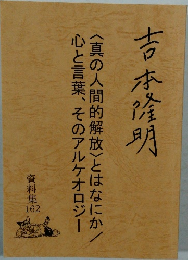 吉本隆明
〈真の人間的解放〉とはなにか/
心と言葉、そのアルケオロジー
資料集
162